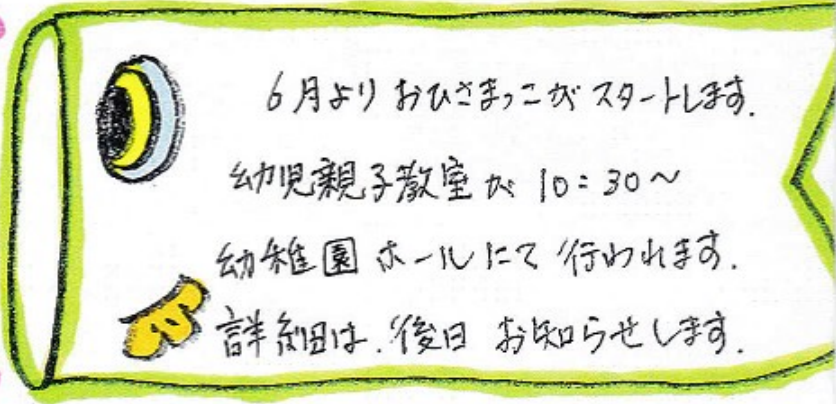 6月より おひさまっこが スタートします.
幼児親子教室が 10:30〜
幼稚園 ホールにて 行われます.
詳細は. 後日 お知らせします.